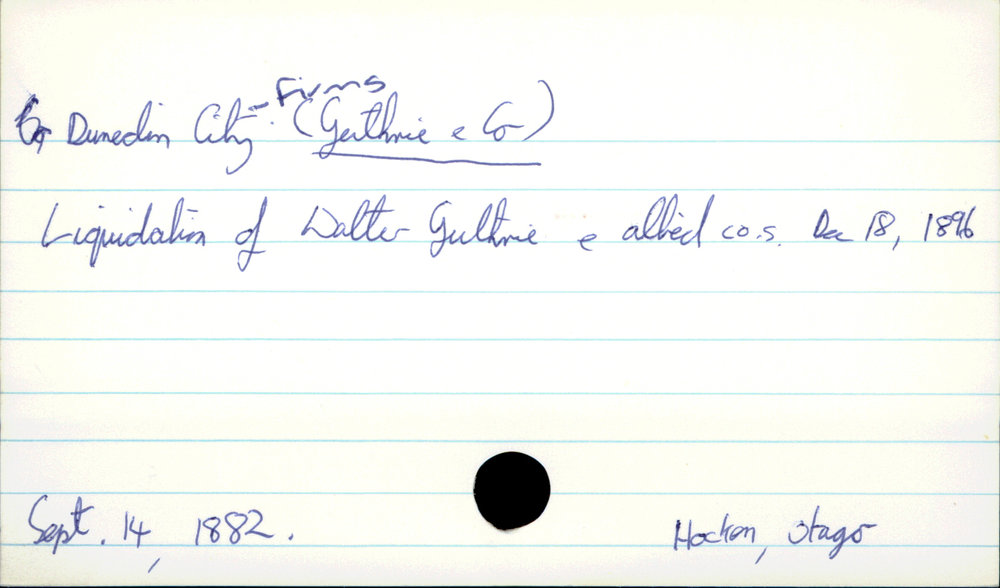 Dunedin City - Firms (Guthrie & Co)
Liquidation of Walter Guthrie & allied co.s. Dec 18, 1896
Sept. 14, 1882.
Hocken, Otago